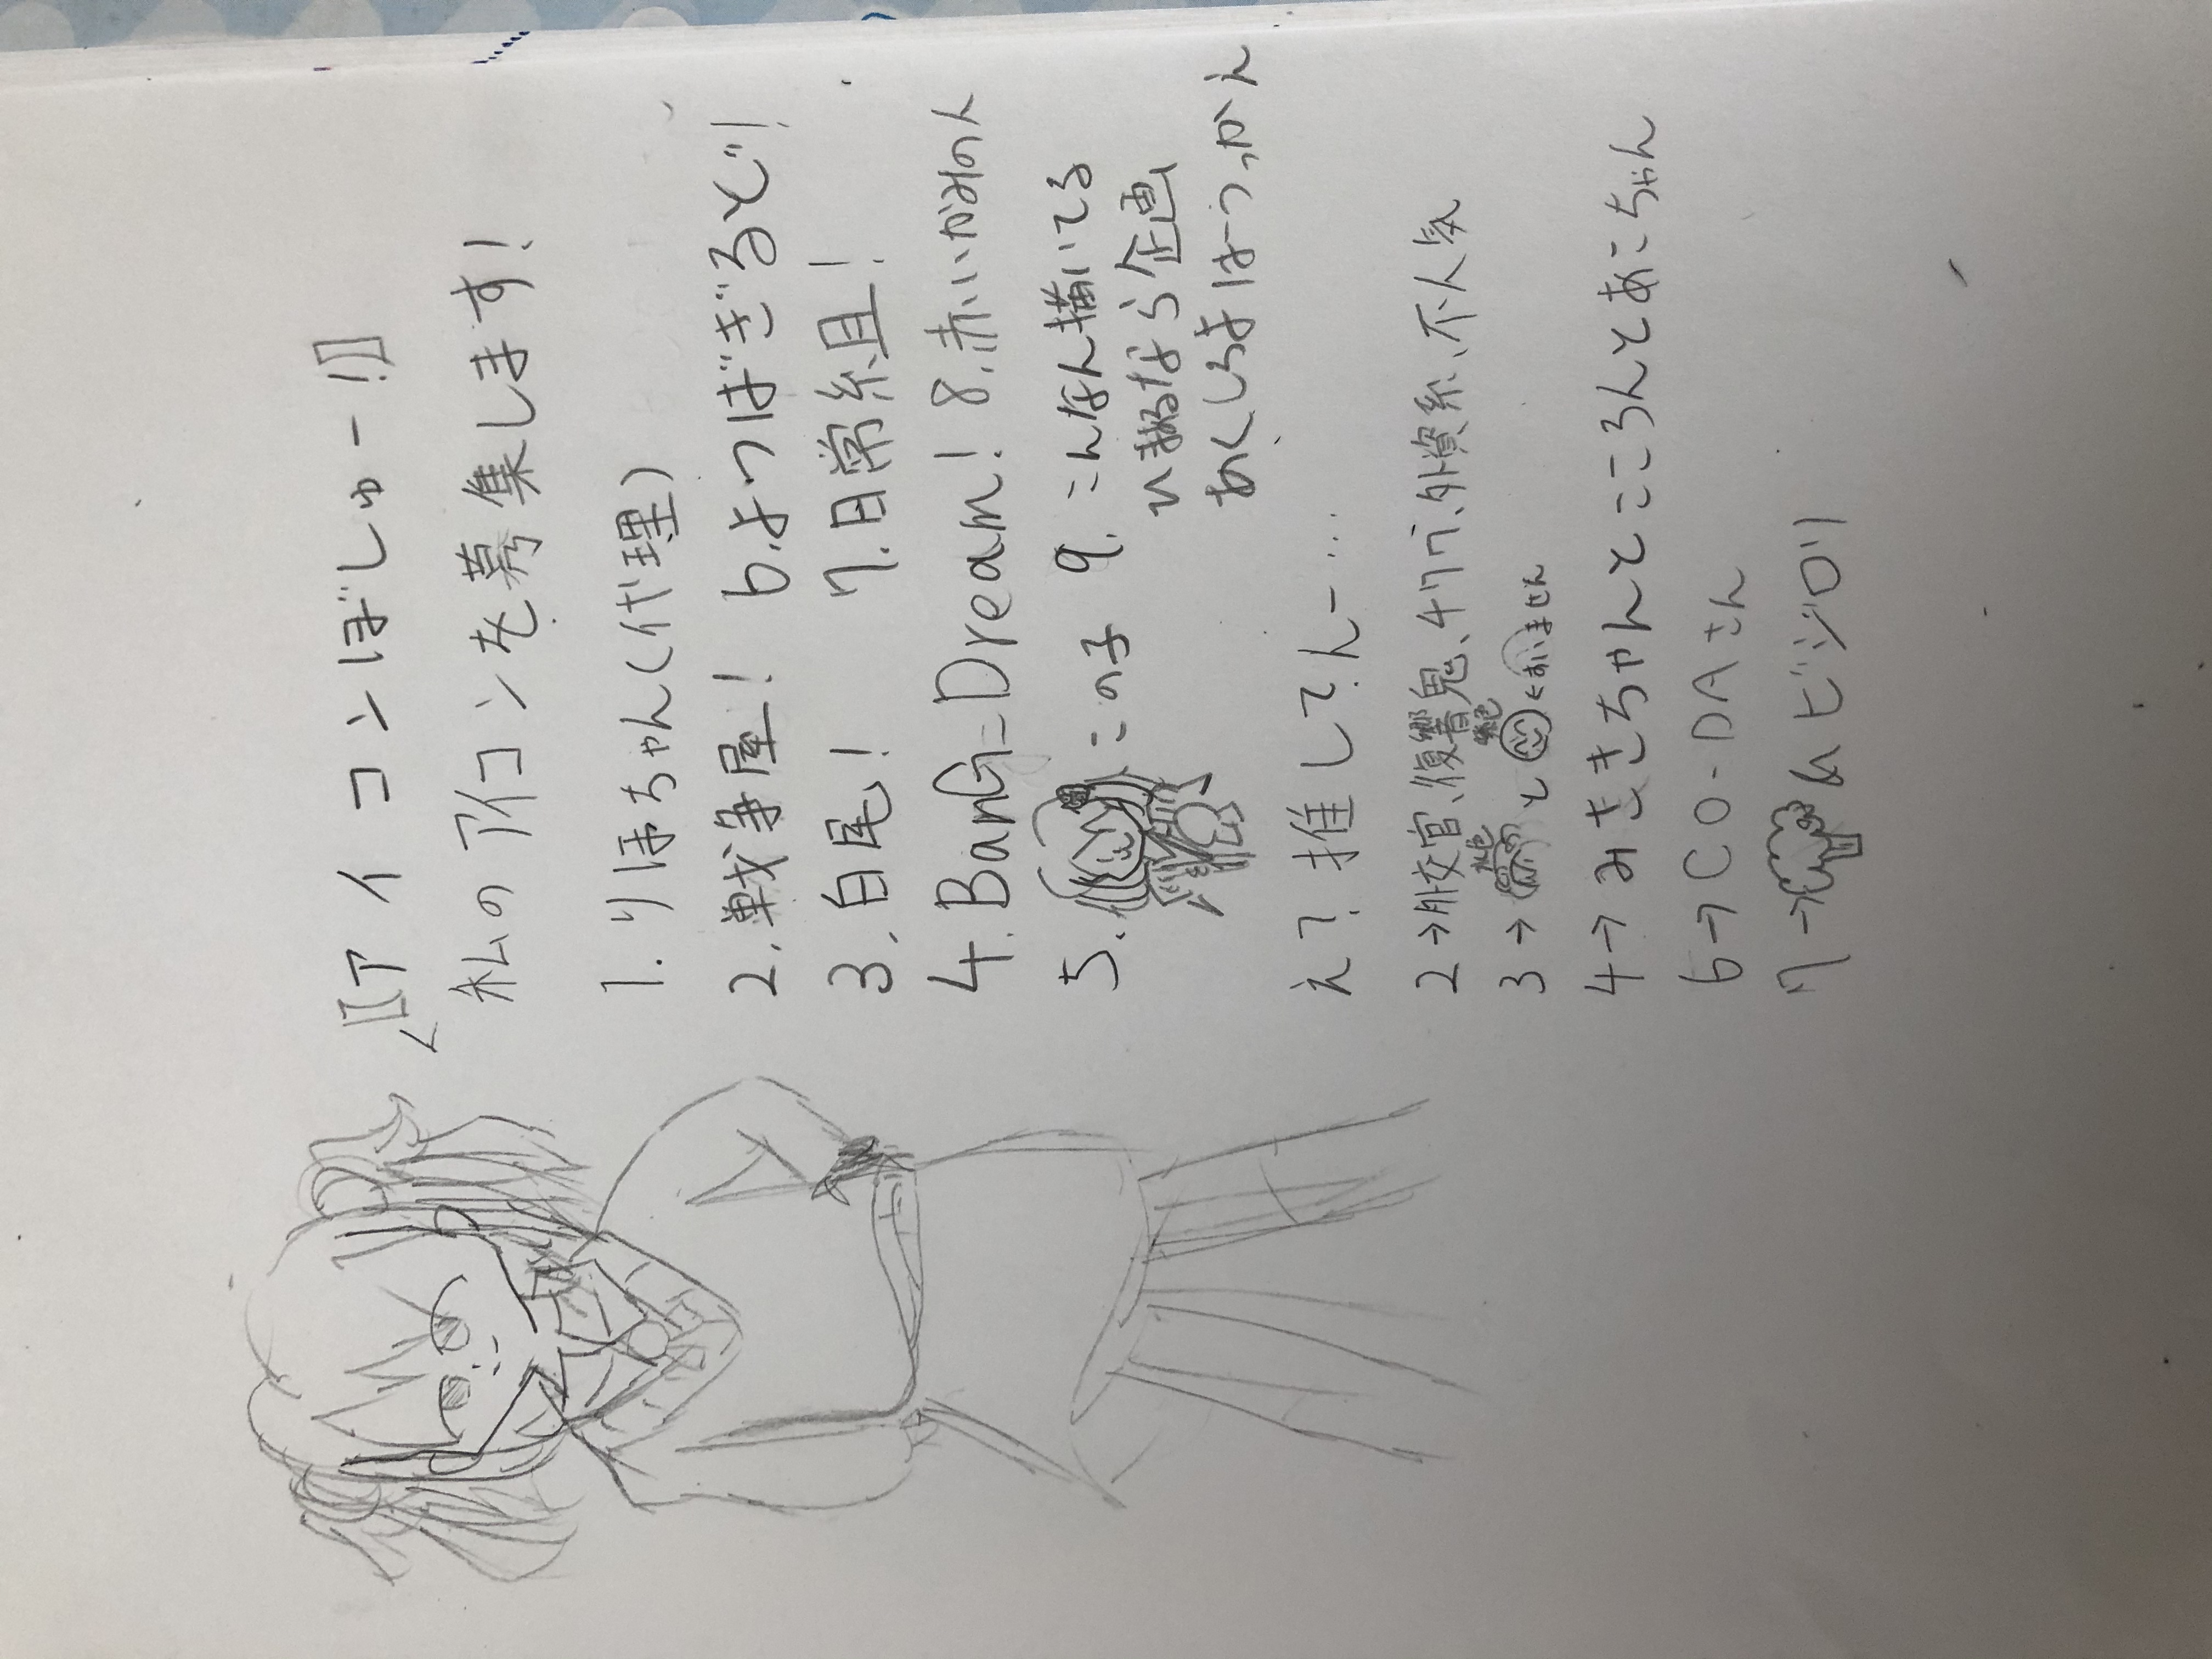 【アイコンぼしゅー!】
私のアイコンを募集します!
1.りほちゃん(代理)
2.戦争屋!
3.白尾!
4.BanG=Dream!
5. この子
6.よつばぎるど!
7.日常組!
8.赤いかみの人
9.こんなん描いてる
ひまあるなら企画
あくしろよはーつ、かえ
え?推しって?んー…
2→外交官、復讐鬼、ササデ、外資系、不人気
3→ 桃色 と 紫色 くあいません
4→みききちゃんとこころんとあこちゃん
6→CO-DAさん
7→ &ピジロリ